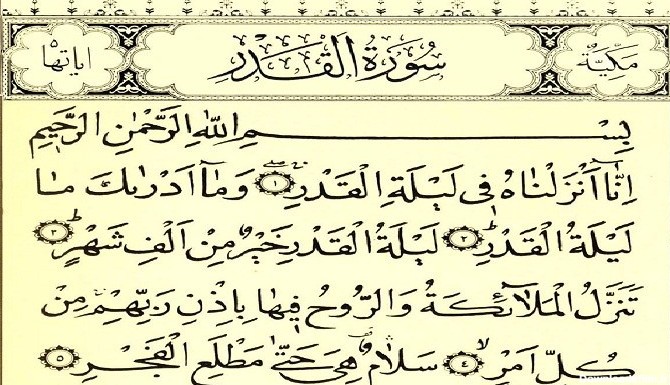 مَكِّيَّةٌ سُورَةُ الْقَدْرِ اياتها ۵
بِسْمِ اللّٰهِ الرَّحْمٰنِ الرَّحٖيمِ
اِنَّٓا اَنْزَلْنَاهُ فٖى لَيْلَةِ الْقَدْرِ ﴿١﴾ وَمَٓا اَدْرٰيكَ مَا
لَيْلَةُ الْقَدْرِؕ ﴿٢﴾ لَيْلَةُ الْقَدْرِ خَيْرٌ مِنْ اَلْفِ شَهْرٍؕ ﴿٣﴾
تَنَزَّلُ الْمَلٰٓائِكَةُ وَالرُّوحُ فٖيهَا بِاِذْنِ رَبِّهِمْ مِنْ
كُلِّ اَمْرٍۙ ﴿٤﴾ سَلَامٌ هِىَ حَتّٰى مَطْلَعِ الْفَجْرِ ﴿٥﴾